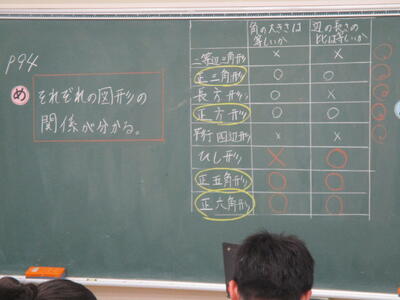 P94
め それぞれの図形の
関係が分かる。
角の大きさは 辺の長さの
等しいか 比は等しいか
二等辺三角形 × ×
正三角形 ○ ○
長方形 ○ ×
正方形 ○ ○
平行四辺形 × ×
ひし形 × ○
正五角形 ○ ○
正六角形 ○ ○